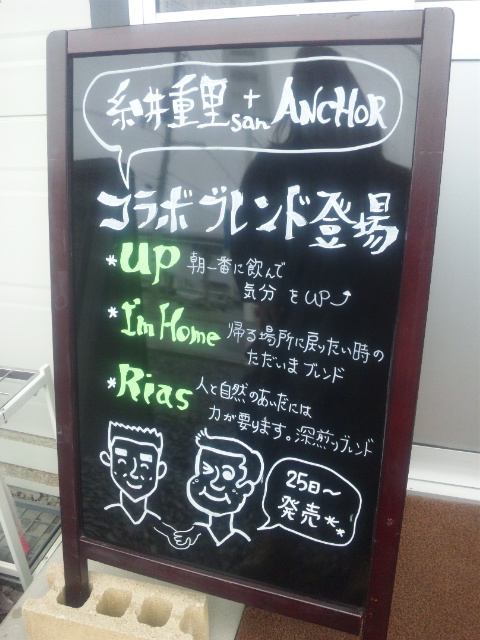 糸井重里san + ANCHOR
コラボブレンド登場
*UP 朝一番に飲んで
気分 をUP⤴
*I'm Home 帰る場所に戻りたい時の
ただいまブレンド
*Rias 人と自然のあいだには
力が要ります。深煎りブレンド
25日〜
発売**